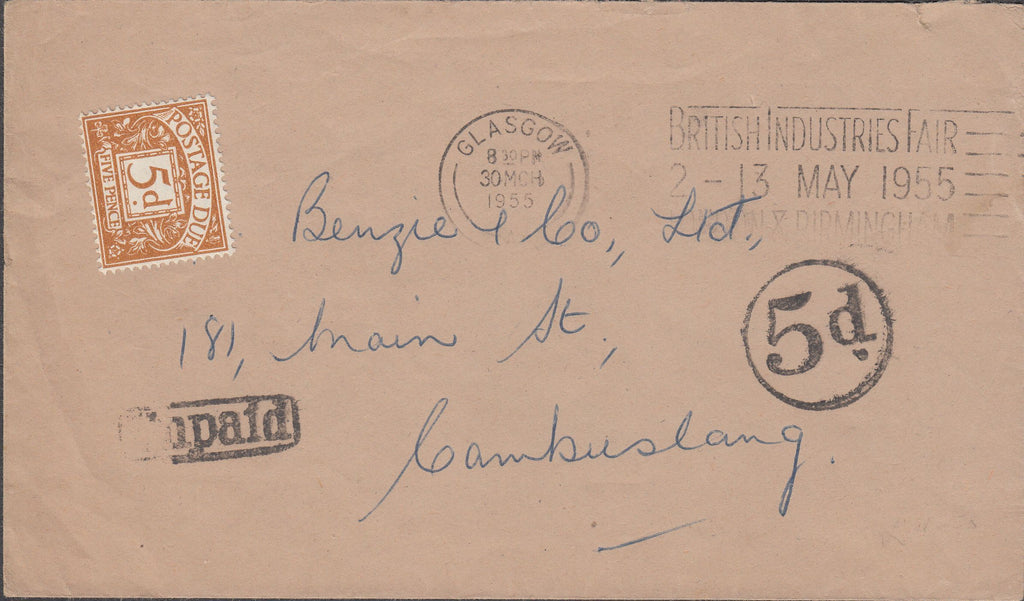 POSTAGE DUE
5d.
FIVE PENCE
GLASGOW
8 30 PM
30 MCH
1955
BRITISH INDUSTRIES FAIR
2 - 13 MAY 1955
& BIRMINGHAM
Benzie & Co., Ltd.,
181, Main St.,
5d.
Unpaid
Cambuslang.